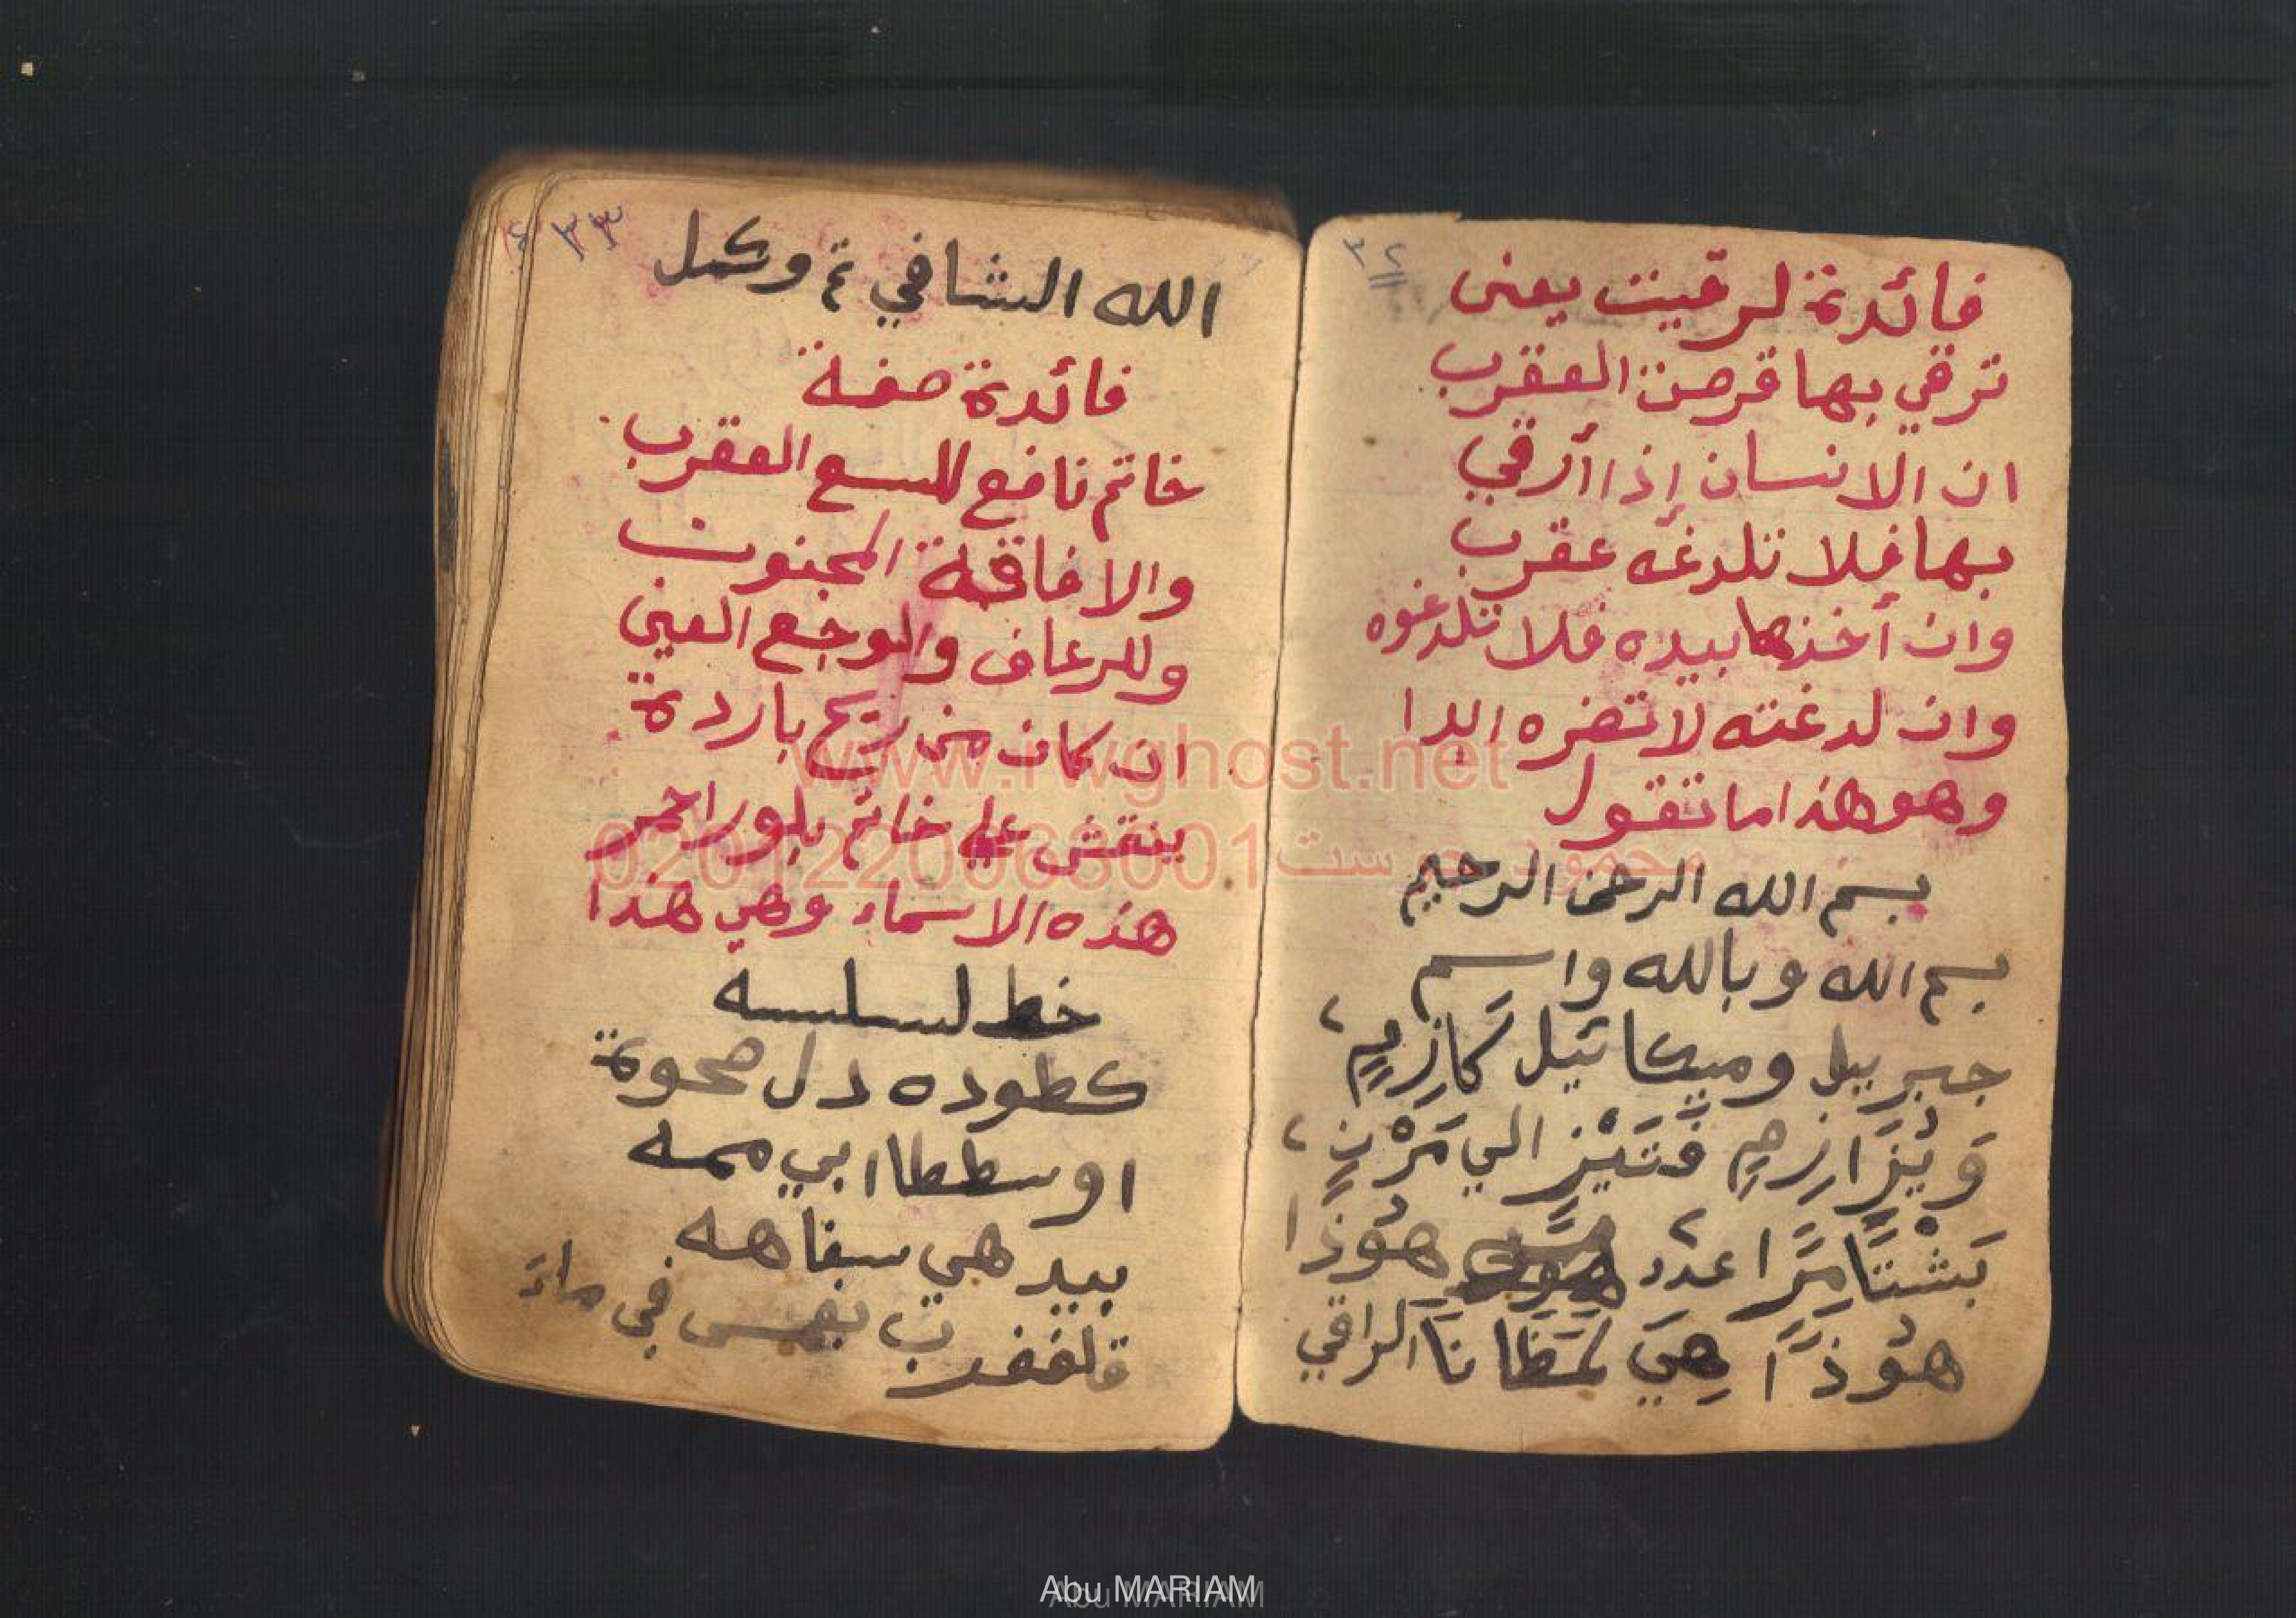 ٣٢
فائدة لرقيت يعنى
ترقي بها قرصة العقرب
ان الانسان إذا أرقي
بها فلا تلدغه عقرب
وان أخذها بيده فلا تلدغوه
وان لدغته لا تضره ابدا
وهو هذا ما تقول
بسم الله الرحمن الرحيم
بسم الله وبالله واسم
جبرييل وميكائيل كَازِمٍ
بَشْتَا مَرًا عدد هُوذا
هُوذًا هِيَ الراقي
٣٣
الله الشافي تم وكمل
فائدة صفة
خاتم نافع للسع العقرب
والافاقة المجنون
وللرعاف والوجع العين
ان كان من ريح باردة
ينقش على خاتم بلور احمر
هذه الاسماء وهي هذا
خط لسلسه
كطوده دل صحوة
اوسططا ابي ممه
بيد هي سفاهه
في ماء
www.rwghost.net
0201220063001
Abu MARIAM